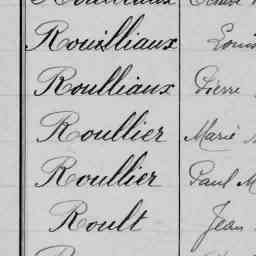 Rouilliaux Louis
Roulliaux Pierre
Roullier Marie
Roullier Paul M
Roult Jean